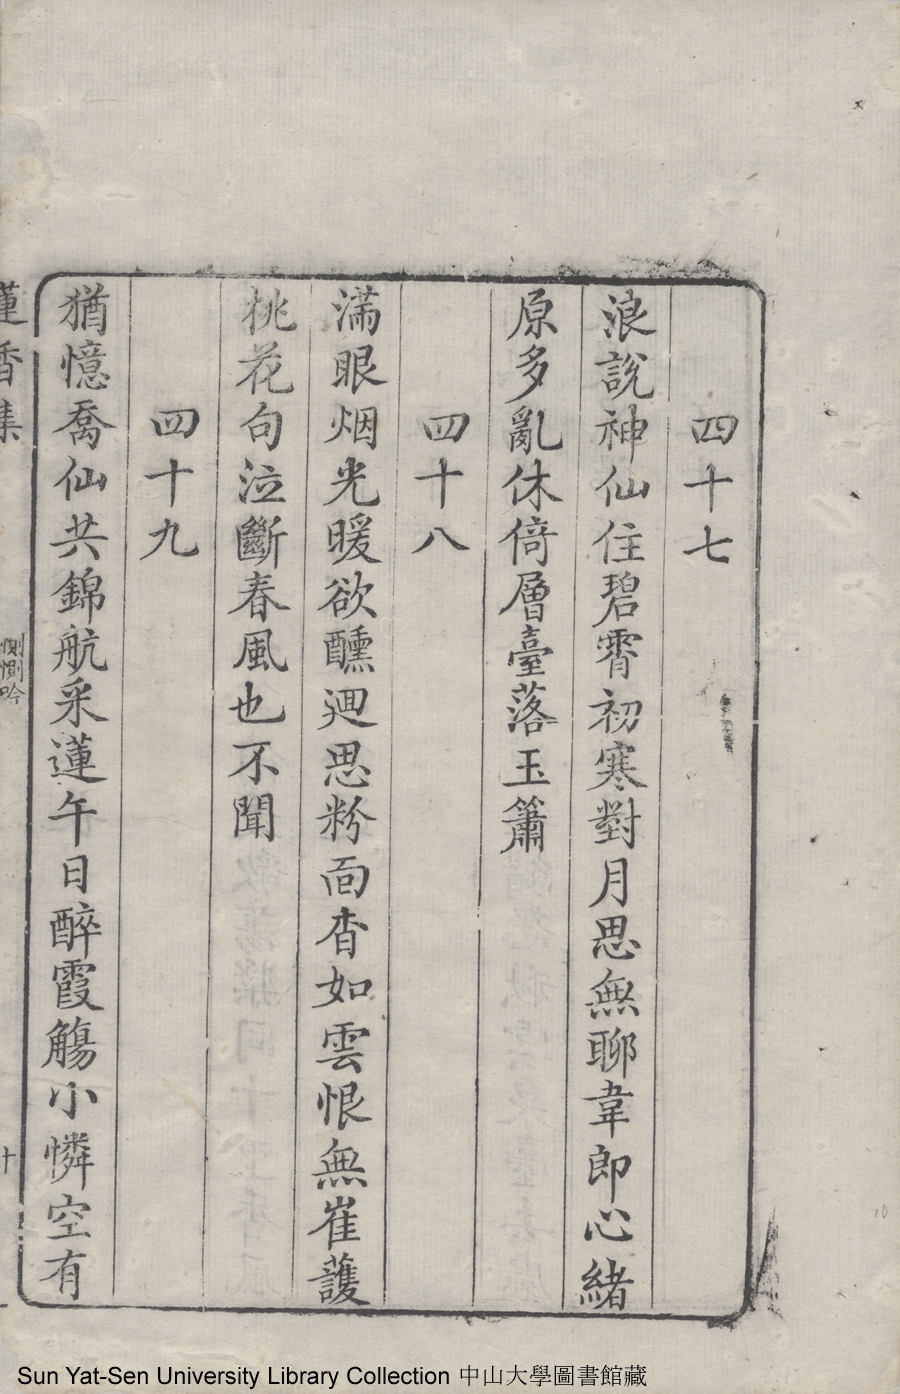 四十七
浪說神仙住碧霄初寒對月思無聊韋郎心緒
原多亂休倚層臺落玉簫
四十八
滿眼烟光暖欲醺廽思粉面杳如雲恨無崔護
桃花句泣斷春風也不聞
四十九
猶憶喬仙共錦航采蓮午日醉霞觴小憐空有
蓮香集
惻惻吟
十
Sun Yat-Sen University Library Collection 中山大學圖書館藏